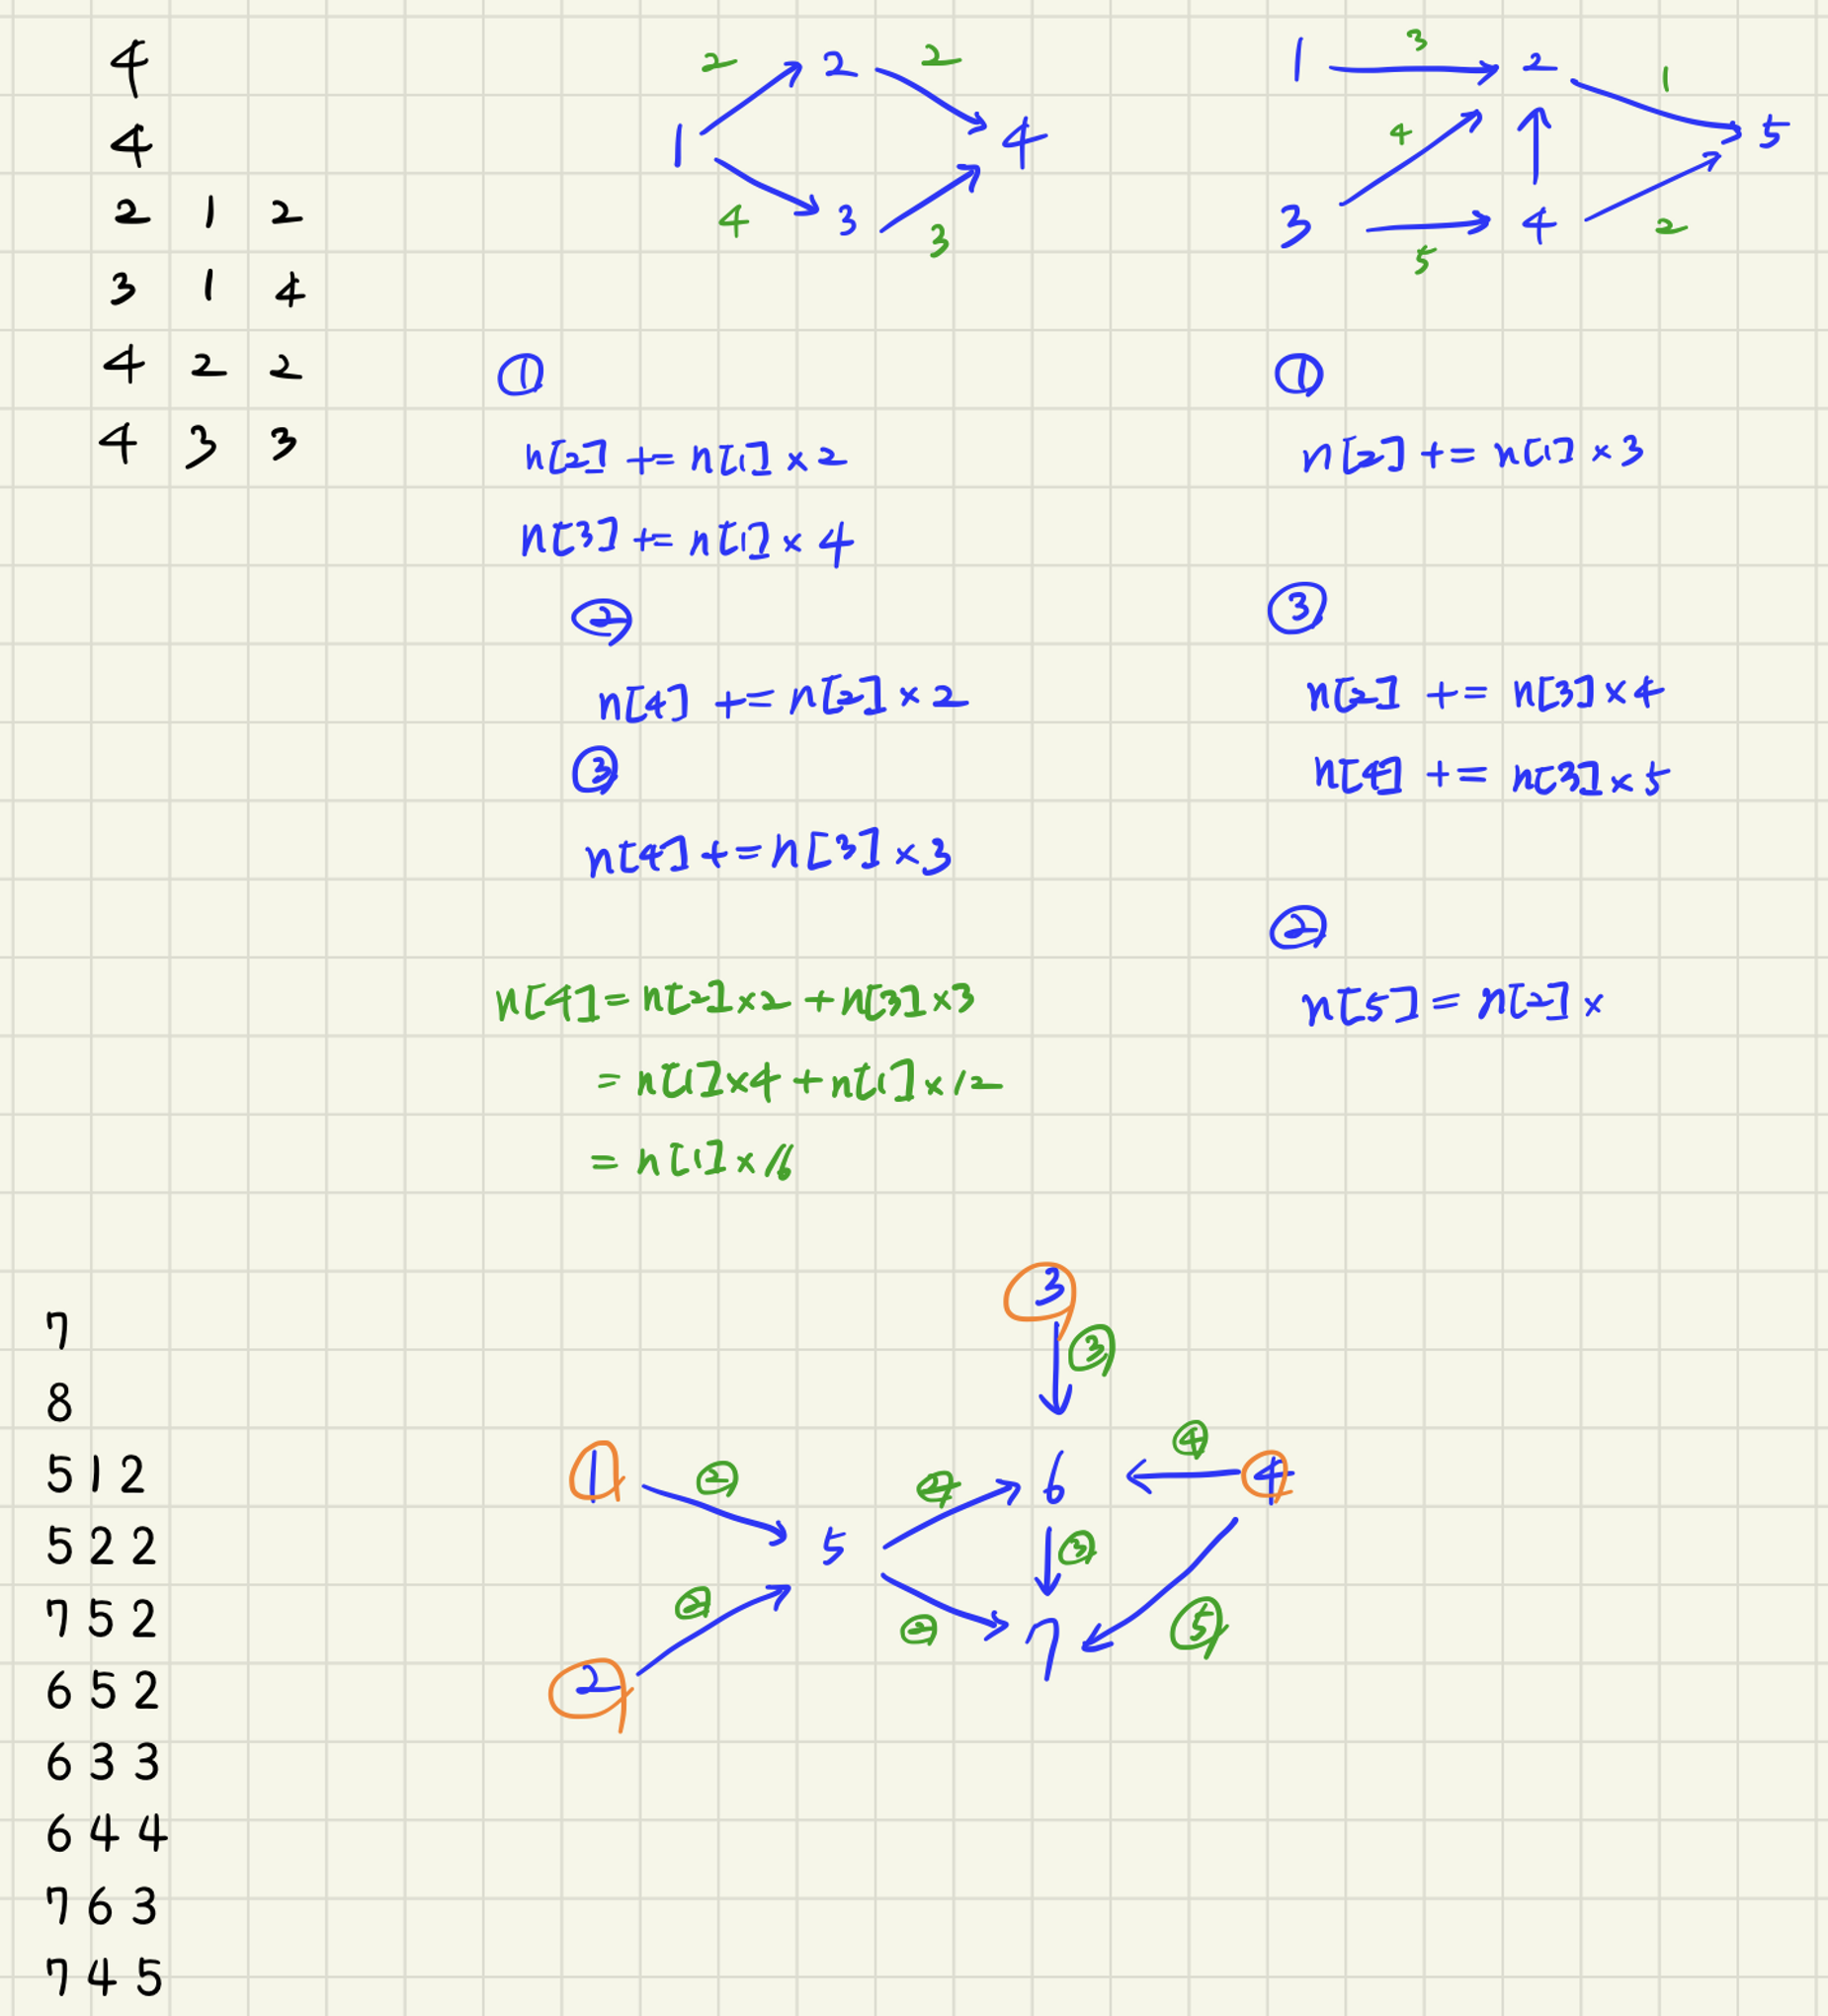 4
4
2 1 2
3 1 4
4 2 2
4 3 3
2 2 2
1 4
4 3 3
1 3 2 1
4 5
3 4 2
5
①
n[2] += n[1] × 2
n[3] += n[1] × 4
②
n[4] += n[2] × 2
③
n[4] += n[3] × 3
n[4] = n[2] × 2 + n[3] × 3
= n[1] × 4 + n[1] × 12
= n[1] × 16
①
n[2] += n[1] × 3
③
n[2] += n[3] × 4
n[4] += n[3] × 5
②
n[5] = n[2] ×
7
8
5 1 2
5 2 2
7 5 2
6 5 2
6 3 3
6 4 4
7 6 3
7 4 5
3
③
④
1 ② ② 6 4
5 ③
② ② 7 ⑤
2